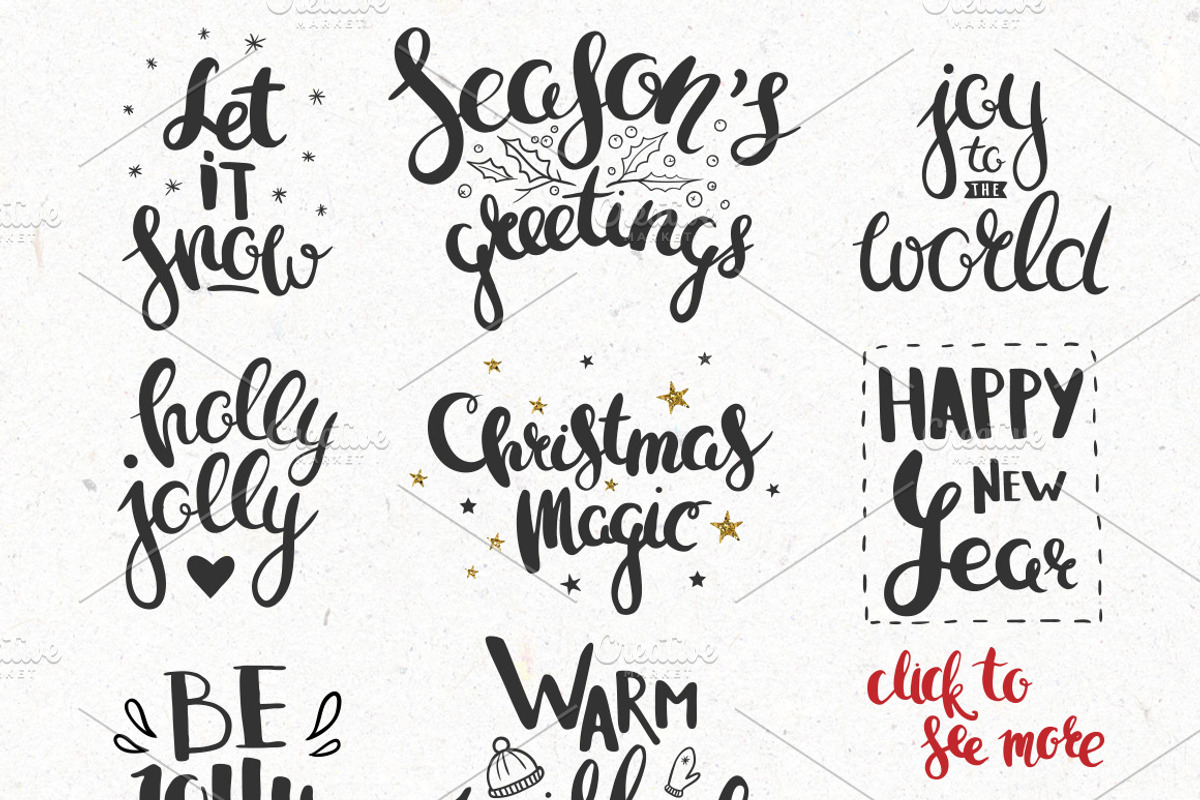 Let
it
snow
Season's
greetings
joy
to
THE
world
holly
jolly
Christmas
Magic
HAPPY
NEW
Year
BE
WARM
click to
see more
Creative
MARKET